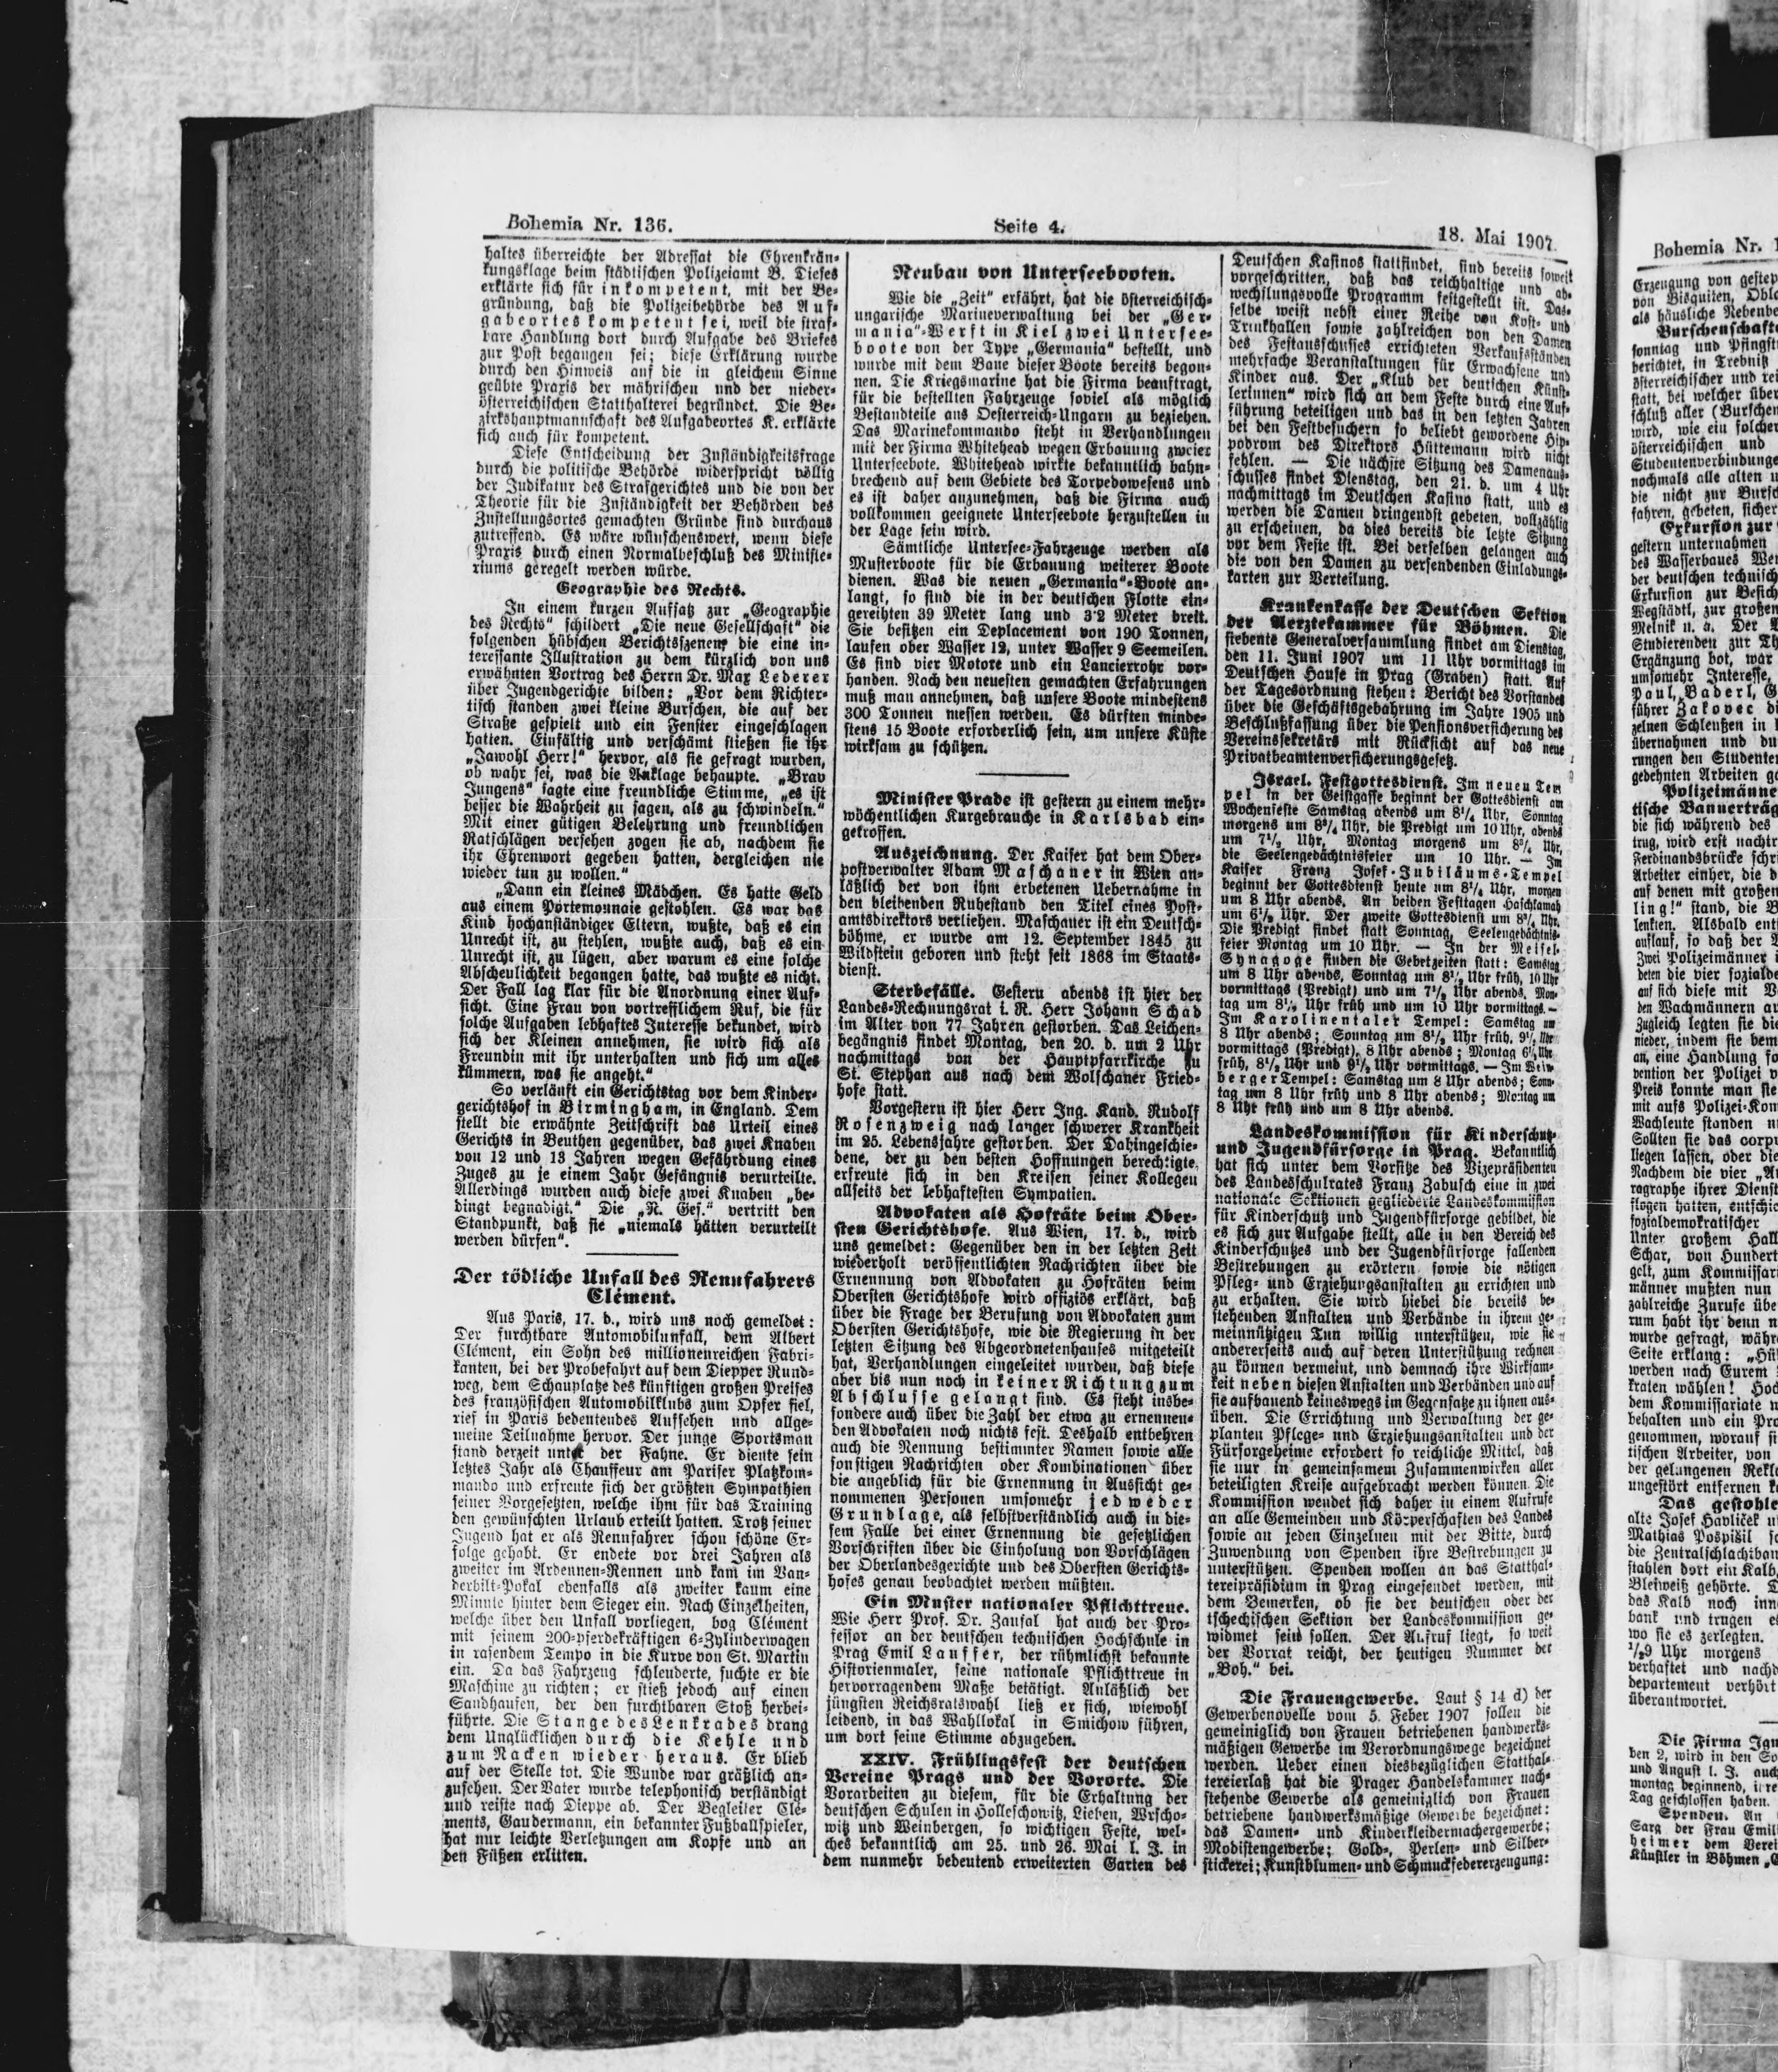 Bohemia Nr. 136.
Seite 4.
18. Mai 1907.
haltes überreichte der Adressat die Ehrenkrän-
kungsklage beim städtischen Polizeiamt B. Dieses
erklärte sich für inkompetent, mit der Be-
gründung, daß die Polizeibehörde des Auf-
gabeortes kompetent sei, weil die straf-
bare Handlung dort durch Aufgabe des Briefes
zur Post begangen sei; diese Erklärung wurde
durch den Hinweis auf die in gleichem Sinne
geübte Praxis der mährischen und der nieder-
österreichischen Statthalterei begründet. Die Be-
zirkshauptmannschaft des Aufgabeortes K. erklärte
sich auch für kompetent.
Diese Entscheidung der Zuständigkeitsfrage
durch die politische Behörde widerspricht völlig
der Judikatur des Strafgerichtes und die von der
Theorie für die Zuständigkeit der Behörden des
Zustellungsortes gemachten Gründe sind durchaus
zutreffend. Es wäre wünschenswert, wenn diese
Praxis durch einen Normalbeschluß des Ministe-
riums geregelt werden würde.
Geographie des Rechts.
In einem kurzen Aufsatz zur „Geographie
des Rechts“ schildert „Die neue Gesellschaft“ die
folgenden hübschen Berichtsszenen, die eine in-
teressante Illustration zu dem kürzlich von uns
erwähnten Vortrag des Herrn Dr. Max Lederer
über Jugendgerichte bilden: „Vor dem Richter-
tisch standen zwei kleine Burschen, die auf der
Straße gespielt und ein Fenster eingeschlagen
hatten. Einfältig und verschämt stießen sie ihr
„Jawohl Herr!“ hervor, als sie gefragt wurden,
ob wahr sei, was die Anklage behaupte. „Brav
Jungens“ sagte eine freundliche Stimme, „es ist
besser die Wahrheit zu sagen, als zu schwindeln.“
Mit einer gütigen Belehrung und freundlichen
Ratschlägen versehen zogen sie ab, nachdem sie
ihr Ehrenwort gegeben hatten, dergleichen nie
wieder tun zu wollen.“
„Dann ein kleines Mädchen. Es hatte Geld
aus einem Portemonnaie gestohlen. Es war das
Kind hochanständiger Eltern, wußte, daß es ein
Unrecht ist, zu stehlen, wußte auch, daß es ein
Unrecht ist, zu lügen, aber warum es eine solche
Abscheulichkeit begangen hatte, das wußte es nicht.
Der Fall lag klar für die Anordnung einer Auf-
sicht. Eine Frau von vortrefflichem Ruf, die für
solche Aufgaben lebhaftes Interesse bekundet, wird
sich der Kleinen annehmen, sie wird sich als
Freundin mit ihr unterhalten und sich um alles
kümmern, was sie angeht.“
So verläuft ein Gerichtstag vor dem Kinder-
gerichtshof in Birmingham, in England. Dem
stellt die erwähnte Zeitschrift das Urteil eines
Gerichts in Beuthen gegenüber, das zwei Knaben
von 12 und 13 Jahren wegen Gefährdung eines
Zuges zu je einem Jahr Gefängnis verurteilte.
Allerdings wurden auch diese zwei Knaben „be-
dingt begnadigt.“ Die „N. Ges.“ vertritt den
Standpunkt, daß sie „niemals hätten verurteilt
werden dürfen“.
Der tödliche Unfall des Rennfahrers
Clément.
Aus Paris, 17. d., wird uns noch gemeldet:
Der furchtbare Automobilunfall, dem Albert
Clément, ein Sohn des millionenreichen Fabri-
kanten, bei der Probefahrt auf dem Diepper Rund-
weg, dem Schauplatze des künftigen großen Preises
des französischen Automobilklubs zum Opfer fiel,
rief in Paris bedeutendes Aufsehen und allge-
meine Teilnahme hervor. Der junge Sportsman
stand derzeit unter der Fahne. Er diente sein
letztes Jahr als Chauffeur am Pariser Platzkom-
mando und erfreute sich der größten Sympathien
seiner Vorgesetzten, welche ihm für das Training
den gewünschten Urlaub erteilt hatten. Trotz seiner
Jugend hat er als Rennfahrer schon schöne Er-
folge gehabt. Er endete vor drei Jahren als
zweiter im Ardennen-Rennen und kam im Van-
derbilt-Pokal ebenfalls als zweiter kaum eine
Minute hinter dem Sieger ein. Nach Einzelheiten,
welche über den Unfall vorliegen, bog Clément
mit seinem 200-pferdekräftigen 6-Zylinderwagen
in rasendem Tempo in die Kurve von St. Martin
ein. Da das Fahrzeug schleuderte, suchte er die
Maschine zu richten; er stieß jedoch auf einen
Sandhaufen, der den furchtbaren Stoß herbei-
führte. Die Stange des Lenkrades drang
dem Unglücklichen durch die Kehle und
zum Nacken wieder heraus. Er blieb
auf der Stelle tot. Die Wunde war gräßlich an-
zusehen. Der Vater wurde telephonisch verständigt
und reiste nach Dieppe ab. Der Begleiter Clé-
ments, Gaudermann, ein bekannter Fußballspieler,
hat nur leichte Verletzungen am Kopfe und an
den Füßen erlitten.
Neubau von Unterseebooten.
Wie die „Zeit“ erfährt, hat die österreichisch-
ungarische Marineverwaltung bei der „Ger-
mania“-Werft in Kiel zwei Untersee-
boote von der Type „Germania“ bestellt, und
wurde mit dem Baue dieser Boote bereits begon-
nen. Die Kriegsmarine hat die Firma beauftragt,
für die bestellten Fahrzeuge soviel als möglich
Bestandteile aus Oesterreich-Ungarn zu beziehen.
Das Marinekommando steht in Verhandlungen
mit der Firma Whitehead wegen Erbauung zweier
Unterseebote. Whitehead wirkte bekanntlich bahn-
brechend auf dem Gebiete des Torpedowesens und
es ist daher anzunehmen, daß die Firma auch
vollkommen geeignete Unterseebote herzustellen in
der Lage sein wird.
Sämtliche Untersee-Fahrzeuge werden als
Musterboote für die Erbauung weiterer Boote
dienen. Was die neuen „Germania“-Boote an-
langt, so sind die in der deutschen Flotte ein-
gereihten 39 Meter lang und 3·2 Meter breit.
Sie besitzen ein Deplacement von 190 Tonnen,
laufen ober Wasser 12, unter Wasser 9 Seemeilen.
Es sind vier Motore und ein Lancierrohr vor-
handen. Nach den neuesten gemachten Erfahrungen
muß man annehmen, daß unsere Boote mindestens
300 Tonnen messen werden. Es dürften minde-
stens 15 Boote erforderlich sein, um unsere Küste
wirksam zu schützen.
Minister Prade ist gestern zu einem mehr-
wöchentlichen Kurgebrauche in Karlsbad ein-
getroffen.
Auszeichnung. Der Kaiser hat dem Ober-
postverwalter Adam Maschauer in Wien an-
läßlich der von ihm erbetenen Uebernahme in
den bleibenden Ruhestand den Titel eines Post-
amtsdirektors verliehen. Maschauer ist ein Deutsch-
böhme, er wurde am 12. September 1845 zu
Wildstein geboren und steht seit 1868 im Staats-
dienst.
Sterbefälle. Gestern abends ist hier der
Landes-Rechnungsrat i. R. Herr Johann Schad
im Alter von 77 Jahren gestorben. Das Leichen-
begängnis findet Montag, den 20. d. um 2 Uhr
nachmittags von der Hauptpfarrkirche zu
St. Stephan aus nach dem Wolschaner Fried-
hofe statt.
Vorgestern ist hier Herr Ing. Kand. Rudolf
Rosenzweig nach langer schwerer Krankheit
im 25. Lebensjahre gestorben. Der Dahingeschie-
bene, der zu den besten Hoffnungen berechtigte,
erfreute sich in den Kreisen seiner Kollegen
allseits der lebhaftesten Sympatien.
Advokaten als Hofräte beim Ober-
sten Gerichtshofe. Aus Wien, 17. d., wird
uns gemeldet: Gegenüber den in der letzten Zeit
wiederholt veröffentlichten Nachrichten über die
Ernennung von Advokaten zu Hofräten beim
Obersten Gerichtshofe wird offiziös erklärt, daß
über die Frage der Berufung von Advokaten zum
Obersten Gerichtshofe, wie die Regierung in der
letzten Sitzung des Abgeordnetenhauses mitgeteilt
hat, Verhandlungen eingeleitet wurden, daß diese
aber bis nun noch in keiner Richtung zum
Abschlusse gelangt sind. Es steht insbe-
sondere auch über die Zahl der etwa zu ernennen-
den Advokaten noch nichts fest. Deshalb entbehren
auch die Nennung bestimmter Namen sowie alle
sonstigen Nachrichten oder Kombinationen über
die angeblich für die Ernennung in Aussicht ge-
nommenen Personen umsomehr jedweder
Grundlage, als selbstverständlich auch in die-
sem Falle bei einer Ernennung die gesetzlichen
Vorschriften über die Einholung von Vorschlägen
der Oberlandesgerichte und des Obersten Gerichts-
hofes genau beobachtet werden müßten.
Ein Muster nationaler Pflichttreue.
Wie Herr Prof. Dr. Zaufal hat auch der Pro-
fessor an der deutschen technischen Hochschule in
Prag Emil Lauffer, der rühmlichst bekannte
Historienmaler, seine nationale Pflichttreue in
hervorragendem Maße betätigt. Anläßlich der
jüngsten Reichsratswahl ließ er sich, wiewohl
leidend, in das Wahllokal in Smichow führen,
um dort seine Stimme abzugeben.
XXIV. Frühlingsfest der deutschen
Vereine Prags und der Vororte. Die
Vorarbeiten zu diesem, für die Erhaltung der
deutschen Schulen in Holleschowitz, Lieben, Wrscho-
witz und Weinbergen, so wichtigen Feste, wel-
ches bekanntlich am 25. und 26. Mai l. J. in
dem nunmehr bedeutend erweiterten Garten des
Deutschen Kasinos stattfindet, sind bereits soweit
vorgeschritten, daß das reichhaltige und ab-
wechslungsvolle Programm festgestellt ist. Das-
selbe weist nebst einer Reihe von Kost- und
Trinkhallen sowie zahlreichen von den Damen
des Festausschusses errichteten Verkaufsständen
mehrfache Veranstaltungen für Erwachsene und
Kinder aus. Der „Klub der deutschen Künst-
lerinnen“ wird sich an dem Feste durch eine Auf-
führung beteiligen und das in den letzten Jahren
bei den Festbesuchern so beliebt gewordene Hip-
podrom des Direktors Hüttemann wird nicht
fehlen. — Die nächste Sitzung des Damenaus-
schusses findet Dienstag, den 21. d. um 4 Uhr
nachmittags im Deutschen Kasino statt, und es
werden die Damen dringendst gebeten, vollzählig
zu erscheinen, da dies bereits die letzte Sitzung
vor dem Feste ist. Bei derselben gelangen auch
die von den Damen zu versendenden Einladungs-
karten zur Verteilung.
Krankenkasse der Deutschen Sektion
der Aerztekammer für Böhmen. Die
siebente Generalversammlung findet am Dienstag,
den 11. Juni 1907 um 11 Uhr vormittags im
Deutschen Hause in Prag (Graben) statt. Auf
der Tagesordnung stehen: Bericht des Vorstandes
über die Geschäftsgebahrung im Jahre 1905 und
Beschlußfassung über die Pensionsversicherung des
Vereinssekretärs mit Rücksicht auf das neue
Privatbeamtenversicherungsgesetz.
Israel. Festgottesdienst. Im neuen Tem
pel in der Geistgasse beginnt der Gottesdienst am
Wochenfeste Samstag abends um 8¼ Uhr, Sonntag
morgens um 8¾ Uhr, die Predigt um 10 Uhr, abends
um 7½ Uhr, Montag morgens um 8¾ Uhr,
die Seelengedächtnisfeier um 10 Uhr. — Im
Kaiser Franz Josef-Jubiläums-Tempel
beginnt der Gottesdienst heute um 8¼ Uhr, morgen
um 8 Uhr abends. An beiden Festtagen Haschkamah
um 6½ Uhr. Der zweite Gottesdienst um 8¾ Uhr.
Die Predigt findet statt Sonntag, Seelengedächtnis-
feier Montag um 10 Uhr. — In der Meisel-
Synagoge finden die Gebetzeiten statt: Samstag
um 8 Uhr abends, Sonntag um 8½ Uhr früh, 10 Uhr
vormittags (Predigt) und um 7½ Uhr abends, Mon-
tag um 8½ Uhr früh und um 10 Uhr vormittags. —
Im Karolinentaler Tempel: Samstag um
8 Uhr abends; Sonntag um 8½ Uhr früh, 9½ Uhr
vormittags (Predigt), 8 Uhr abends; Montag 6½ Uhr
früh, 8½ Uhr und 9½ Uhr vormittags. — Im Wein-
berger Tempel: Samstag um 8 Uhr abends; Sonn-
tag um 8 Uhr früh und 8 Uhr abends; Montag um
8 Uhr früh und um 8 Uhr abends.
Landeskommission für Kinderschutz
und Jugendfürsorge in Prag. Bekanntlich
hat sich unter dem Vorsitze des Vizepräsidenten
des Landesschulrates Franz Zabusch eine in zwei
nationale Sektionen gegliederte Landeskommission
für Kinderschutz und Jugendfürsorge gebildet, die
es sich zur Aufgabe stellt, alle in den Bereich des
Kinderschutzes und der Jugendfürsorge fallenden
Bestrebungen zu erörtern sowie die nötigen
Pfleg- und Erziehungsanstalten zu errichten und
zu erhalten. Sie wird hiebei die bereits be-
stehenden Anstalten und Verbände in ihrem ge-
meinnützigen Tun willig unterstützen, wie sie
andererseits auch auf deren Unterstützung rechnen
zu können vermeint, und demnach ihre Wirksam-
keit neben diesen Anstalten und Verbänden und auf
sie aufbauend keineswegs im Gegensatze zu ihnen aus-
üben. Die Errichtung und Verwaltung der ge-
planten Pflege- und Erziehungsanstalten und der
Fürsorgeheime erfordert so reichliche Mittel, daß
sie nur in gemeinsamem Zusammenwirken aller
beteiligten Kreise aufgebracht werden können. Die
Kommission wendet sich daher in einem Aufrufe
an alle Gemeinden und Körperschaften des Landes
sowie an jeden Einzelnen mit der Bitte, durch
Zuwendung von Spenden ihre Bestrebungen zu
unterstützen. Spenden wollen an das Statthal-
tereipräsidium in Prag eingesendet werden, mit
dem Bemerken, ob sie der deutschen oder der
tschechischen Sektion der Landeskommission ge-
widmet sein sollen. Der Aufruf liegt, so weit
der Vorrat reicht, der heutigen Nummer der
„Boh.“ bei.
Die Frauengewerbe. Laut § 14 d) der
Gewerbenovelle vom 5. Feber 1907 sollen die
gemeiniglich von Frauen betriebenen handwerks-
mäßigen Gewerbe im Verordnungswege bezeichnet
werden. Ueber einen diesbezüglichen Statthal-
tereierlaß hat die Prager Handelskammer nach-
stehende Gewerbe als gemeiniglich von Frauen
betriebene handwerksmäßige Gewerbe bezeichnet:
das Damen- und Kinderkleidermachergewerbe;
Modistengewerbe; Gold-, Perlen- und Silber-
stickerei; Kunstblumen- und Schmuckfedererzeugung:
Bohemia Nr.
Erzeugung von gestep
von Bisquiten, Obla
als häusliche Nebenbe
Burschenschafte
sonntag und Pfingst
berichtet, in Trebnitz
österreichischer und rei
statt, bei welcher über
schluß aller (Burschen
wird, wie ein solcher
österreichischen und
Studentenverbindunge
nochmals alle alten u
die nicht zur Bursch
fahren, gebeten, sicher
Exkursion zur
gestern unternahmen
des Wasserbaues Wer
der deutschen technisch
Exkursion zur Besich
Wegstädtl, zur großen
Melnik u. a. Der A
Studierenden zur Th
Ergänzung bot, war
umsomehr Interesse,
Paul, Baderl, G
führer Zakovec di
zelnen Schleußen in
übernahmen und du
rungen den Studenten
gedehnten Arbeiten ge
Polizeimänne
tische Bannerträg
die sich während des
trug, wird erst nachtr
Ferdinandsbrücke schri
Arbeiter einher, die d
auf denen mit großen
ling!“ stand, die B
lenkten. Alsbald ent
auflauf, so daß der
Zwei Polizeimänner i
deten die vier sozialde
auf sich diese mit B
den Wachmännern ar
Zugleich legten sie die
nieder, indem sie bem
an, eine Handlung fo
vention der Polizei v
Preis konnte man sie
mit aufs Polizei-Kom
Wachleute standen u
Sollten sie das corpu
liegen lassen, oder die
Nachdem die vier „A
ragraphe ihrer Dienst
flogen hatten, entschie
sozialdemokratischer
Unter großem Hall
Schar, von Hundert
gelt, zum Kommissari
männer mußten nun
zahlreiche Zurufe übe
rum habt ihr denn n
wurde gefragt, währe
Seite erklang: „Hü
werden nach Eurem
kraten wählen! Hoch
dem Kommissariate n
behalten und ein Pro
genommen, worauf si
tischen Arbeiter, von
der gelungenen Rekla
ungestört entfernen k
Das gestohle
alte Josef Havlíček u
Mathias Pospišil so
die Zentralschlachtban
stahlen dort ein Kalb,
Bleiweiß gehörte. D
das Kalb noch inn
bank und trugen es
wo sie es zerlegten.
½9 Uhr morgens
verhaftet und nachd
departement verhört
überantwortet.
Die Firma Ign
ben 2, wird in den So
und August l. J. auch
montag beginnend, ihre
Tag geschlossen haben.
Spenden. An
Sarg der Frau Emil
heimer dem Verei
Künstler in Böhmen